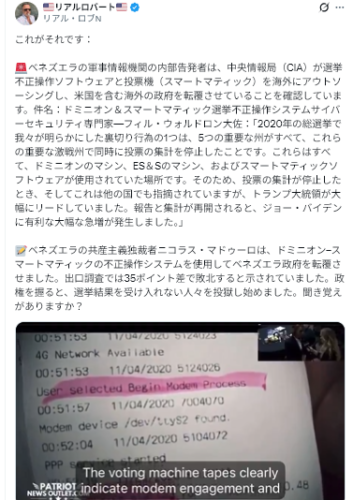 リアルロバート
リアル・ロブN
これがそれです：
ベネズエラの軍事情報機関の内部告発者は、中央情報局（CIA）が選挙
不正操作ソフトウェアと投票機（スマートマティック）を海外にアウトソ
ーシングし、米国を含む海外の政府を転覆させていることを確認していま
す。件名：ドミニオン＆スマートマティック選挙不正操作システムサイバ
ーセキュリティ専門家—フィル・ウォルドロン大佐：「2020年の総選挙で
我々が明らかにした裏切り行為の1つは、5つの重要な州がすべて、これら
の重要な激戦州で同時に投票の集計を停止したことです。これらはすべ
て、ドミニオンのマシン、ES＆Sのマシン、およびスマートマティックソ
フトウェアが使用されていた場所です。そのため、投票の集計が停止した
とき、そしてこれは他の国でも指摘されていますが、トランプ大統領が大
幅にリードしていました。報告と集計が再開されると、ジョー・バイデン
に有利な大幅な急増が発生しました。」
ベネズエラの共産主義独裁者ニコラス・マドゥーロは、ドミニオン–ス
マートマティックの不正操作システムを使用してベネズエラ政府を転覆さ
せました。出口調査では35ポイント差で敗北すると示されていました。政
権を握ると、選挙結果を受け入れない人々を投獄し始めました。聞き覚え
がありますか？
00:51:53 11/04/2020 5124023
4G Network Available
00:51:53 11/04/2020 5124026
User selected Begin Modem Process
00:51:57 11/04/2020 7004070
Modem device /dev/ttyS2 found.
00:52:04 11/04/2020 5104072
PPP service started
The voting machine tapes clearly
indicate modem engagement and
PATRIOT
NEWS OUTLET.COM